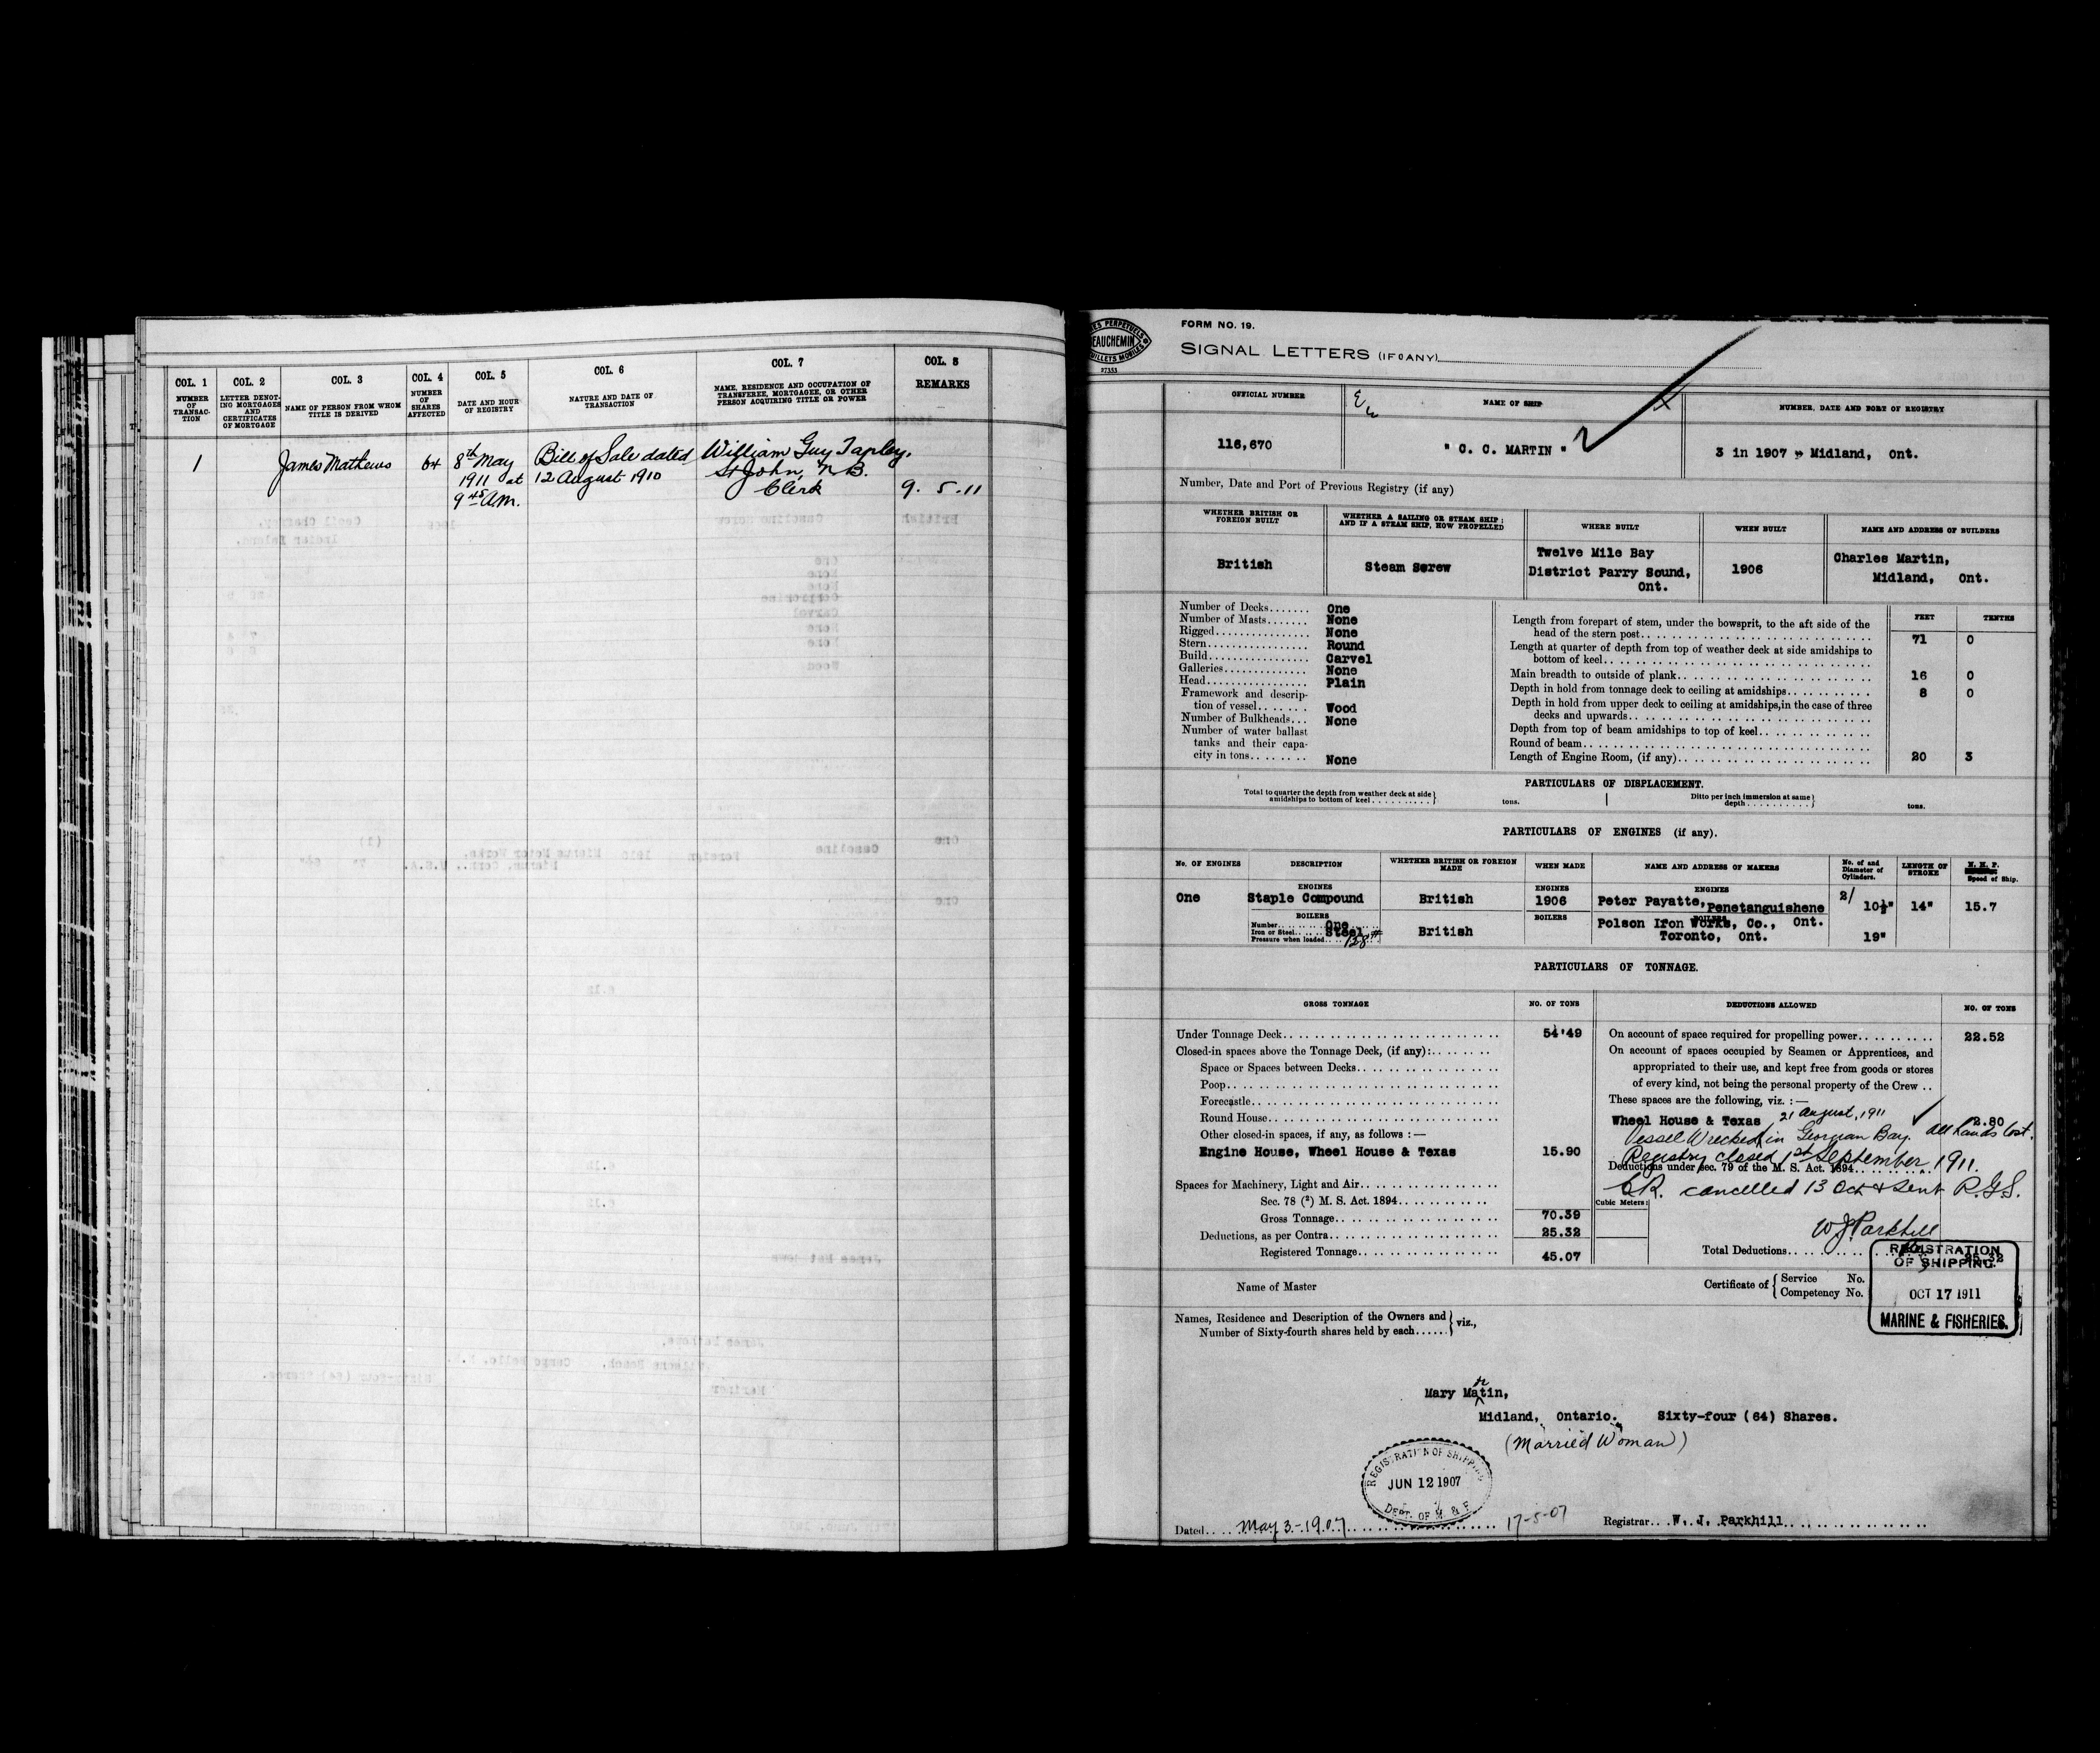 COL. 1
NUMBER OF TRANSAC-TION
COL. 2
LETTER DENOT-ING MORTGAGES AND CERTIFICATES OF MORTGAGE
COL. 3
NAME OF PERSON FROM WHOM TITLE IS DERIVED
COL. 4
NUMBER OF SHARES AFFECTED
COL. 5
DATE AND HOUR OF REGISTRY
COL. 6
NATURE AND DATE OF TRANSACTION
COL. 7
NAME, RESIDENCE AND OCCUPATION OF TRANSFEREE, MORTGAGEE, OR OTHER PERSON ACQUIRING TITLE OR POWER
COL. 8
REMARKS
1 James Mathews 64 8th May Bill of Sale dated William Guy Tapley.
1911 at 12 August 1910 St John, N.B.
9 45 A.M. Clerk 9. 5. 11
BEAUCHEMIN
27353
FORM NO. 19.
SIGNAL LETTERS (IF ANY)
OFFICIAL NUMBER
116,670
NAME OF SHIP
" C. C. MARTIN "
NUMBER, DATE AND PORT OF REGISTRY
3 in 1907 - Midland, Ont.
Number, Date and Port of Previous Registry (if any)
WHETHER BRITISH OR FOREIGN BUILT
British
WHETHER A SAILING OR STEAM SHIP; AND IF A STEAM SHIP, HOW PROPELLED
Steam Screw
WHERE BUILT
Twelve Mile Bay
District Parry Sound,
Ont.
WHEN BUILT
1906
NAME AND ADDRESS OF BUILDERS
Charles Martin,
Midland, Ont.
Number of Decks....... One
Number of Masts....... None
Rigged................ None
Stern................. Round
Build................. Carvel
Galleries............. None
Head.................. Plain
Framework and descrip-
tion of vessel........ Wood
Number of Bulkheads... None
Number of water ballast
tanks and their capa-
city in tons.......... None
FEET TENTHS
Length from forepart of stem, under the bowsprit, to the aft side of the
head of the stern post 71 0
Length at quarter of depth from top of weather deck at side amidships to
bottom of keel
Main breadth to outside of plank 16 0
Depth in hold from tonnage deck to ceiling at amidships 8 0
Depth in hold from upper deck to ceiling at amidships, in the case of three
decks and upwards
Depth from top of beam amidships to top of keel
Round of beam
Length of Engine Room, (if any) 20 3
PARTICULARS OF DISPLACEMENT.
Total to quarter the depth from weather deck at side
amidships to bottom of keel
tons.
Ditto per inch immersion at same
depth
tons.
PARTICULARS OF ENGINES (if any).
No. OF ENGINES
DESCRIPTION
WHETHER BRITISH OR FOREIGN MADE
WHEN MADE
NAME AND ADDRESS OF MAKERS
No. of and Diameter of Cylinders.
LENGTH OF STROKE
N. H. P.
Speed of Ship.
ENGINES ENGINES ENGINES
One Staple Compound British 1906 Peter Payatte, Penetanguishene 2/ 10½" 14" 15.7
BOILERS BOILERS BOILERS
Number One
Iron or Steel Steel British Polson Iron Works, Co., Ont.
Pressure when loaded 138# Toronto, Ont. 19"
PARTICULARS OF TONNAGE.
GROSS TONNAGE
NO. OF TONS
Under Tonnage Deck 54.49
Closed-in spaces above the Tonnage Deck, (if any):
Space or Spaces between Decks
Poop
Forecastle
Round House
Other closed-in spaces, if any, as follows :—
Engine House, Wheel House & Texas 15.90
Spaces for Machinery, Light and Air
Sec. 78 (²) M. S. Act. 1894
Gross Tonnage 70.39
Deductions, as per Contra 25.32
Registered Tonnage 45.07
DEDUCTIONS ALLOWED
NO. OF TONS
On account of space required for propelling power 22.52
On account of spaces occupied by Seamen or Apprentices, and
appropriated to their use, and kept free from goods or stores
of every kind, not being the personal property of the Crew
These spaces are the following, viz. :—
Wheel House & Texas 2.80
21 August, 1911
Vessel Wrecked in Georgian Bay. All hands lost.
Registry closed 1st September 1911.
Deductions under sec. 79 of the M. S. Act. 1894
C.R. cancelled 13 Oct & sent R.G.S.
Cubic Meters:
W J Parkhill
Total Deductions 25.32
REGISTRATION
OF SHIPPING
OCT 17 1911
MARINE & FISHERIES.
Name of Master
Certificate of { Service No.
Competency No.
Names, Residence and Description of the Owners and
Number of Sixty-fourth shares held by each...... } viz.,
r
Mary Matin,
Midland, Ontario. Sixty-four (64) Shares.
(Married Woman)
REGISTRATION OF SHIPPING
JUN 12 1907
DEPT. OF M. & F.
Dated May 3-1907 17-5-07 Registrar W. J. Parkhill